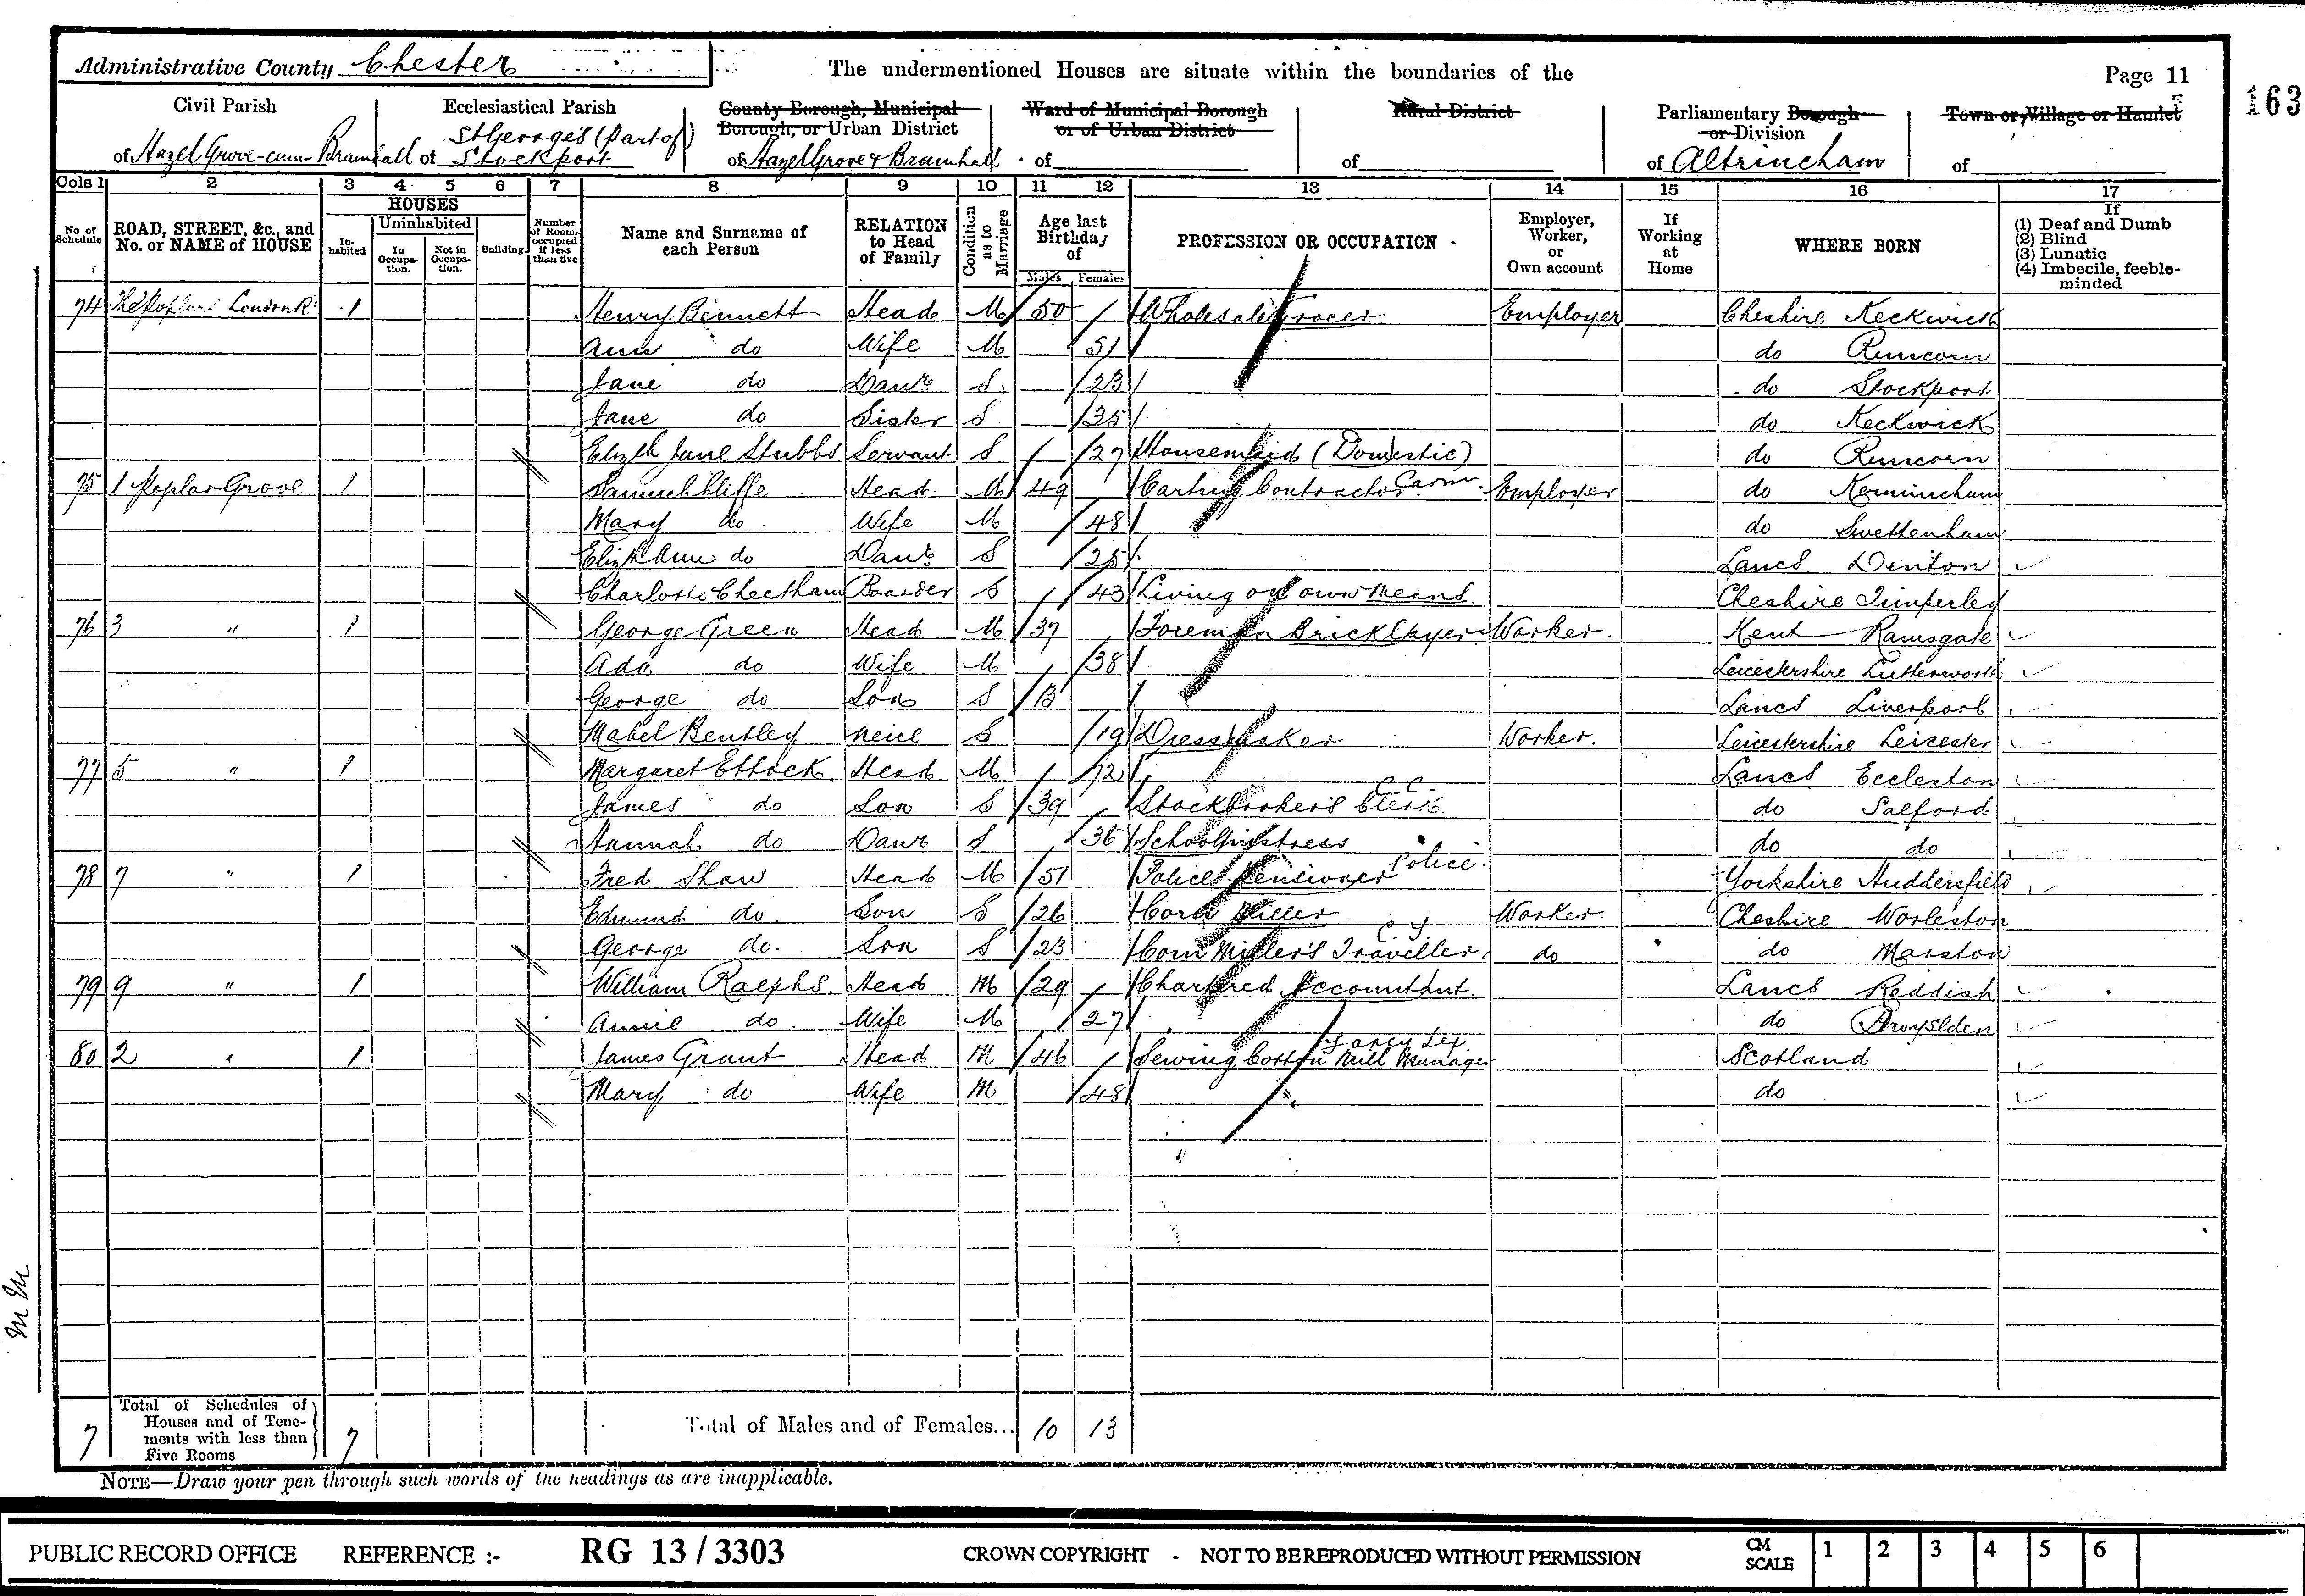 Administrative County Chester
The undermentioned Houses are situate within the boundaries of the
Page 11
163
Civil Parish
of Hazel Grove-cum Bramhall
Ecclesiastical Parish
St George's (part of)
of Stockport
County Borough, Municipal
Borough, or Urban District
of Hazel Grove & Bramhall
Ward of Municipal Borough
or of Urban District
of
Rural District
of
Parliamentary Borough
or Division
of Altrincham
Town or Village or Hamlet
of
Cols 1 2 3 4 5 6 7 8 9 10 11 12 13 14 15 16 17
No. of Schedule
ROAD, STREET, &c., and No. or NAME of HOUSE
HOUSES
Inhabited
Uninhabited
In Occupation.
Not in Occupation.
Building
Number of Rooms occupied if less than five
Name and Surname of each Person
RELATION to Head of Family
Condition as to Marriage
Age last Birthday of
Males Females
PROFESSION OR OCCUPATION
Employer, Worker, or Own account
If Working at Home
WHERE BORN
If
(1) Deaf and Dumb
(2) Blind
(3) Lunatic
(4) Imbecile, feeble-minded
74 The Poplars London Rd 1 Henry Bennett Head M 50 Wholesale Grocer Employer Cheshire Keckwick
Ann do Wife M 51 do Runcorn
Jane do Daur S 23 do Stockport
Jane do Sister S 35 do Keckwick
Elizth Jane Stubbs Servant S 27 Housemaid (Domestic) do Runcorn
75 1 Poplar Grove 1 Samuel Cliffe Head M 49 Carting Contractor Carm. Employer do Kermincham
Mary do Wife M 48 do Swettenham
Elizth Ann do Daur S 25 Lancs Denton
Charlotte Cheetham Boarder S 43 Living on own means Cheshire Timperley
76 3 " 1 George Green Head M 37 Foreman Bricklayer Worker Kent Ramsgate
Ada do Wife M 38 Leicestershire Lutterworth
George do Son S 13 Lancs Liverpool
Mabel Bentley Neice S 19 Dressmaker Worker. Leicestershire Leicester
77 5 " 1 Margaret Ettock Head M 72 Lancs Eccleston
James do Son S 39 Stockbroker's Clerk C.C. do Salford
Hannah do Daur S 36 Schoolmistress do do
78 7 " 1 Fred Shaw Head M 51 Police Pensioner Police. Yorkshire Huddersfield
Edmund do. Son S 26 Corn Miller Worker. Cheshire Worleston
George do. Son S 23 Corn Miller's Traveller do do Marston
79 9 " 1 William Ralphs Head M 29 Chartered Accountant Lancs Reddish
Annie do. Wife M 27 do Droylsden
80 2 " 1 James Grant Head M 46 Sewing Cotton Mill Manager Scotland
Mary do Wife M 48 do
7
Total of Schedules of
Houses and of Tene-
ments with less than
Five Rooms
7
Total of Males and of Females... 10 13
NOTE—Draw your pen through such words of the headings as are inapplicable.
PUBLIC RECORD OFFICE REFERENCE :- RG 13 / 3303 CROWN COPYRIGHT - NOT TO BE REPRODUCED WITHOUT PERMISSION
CM SCALE 1 2 3 4 5 6